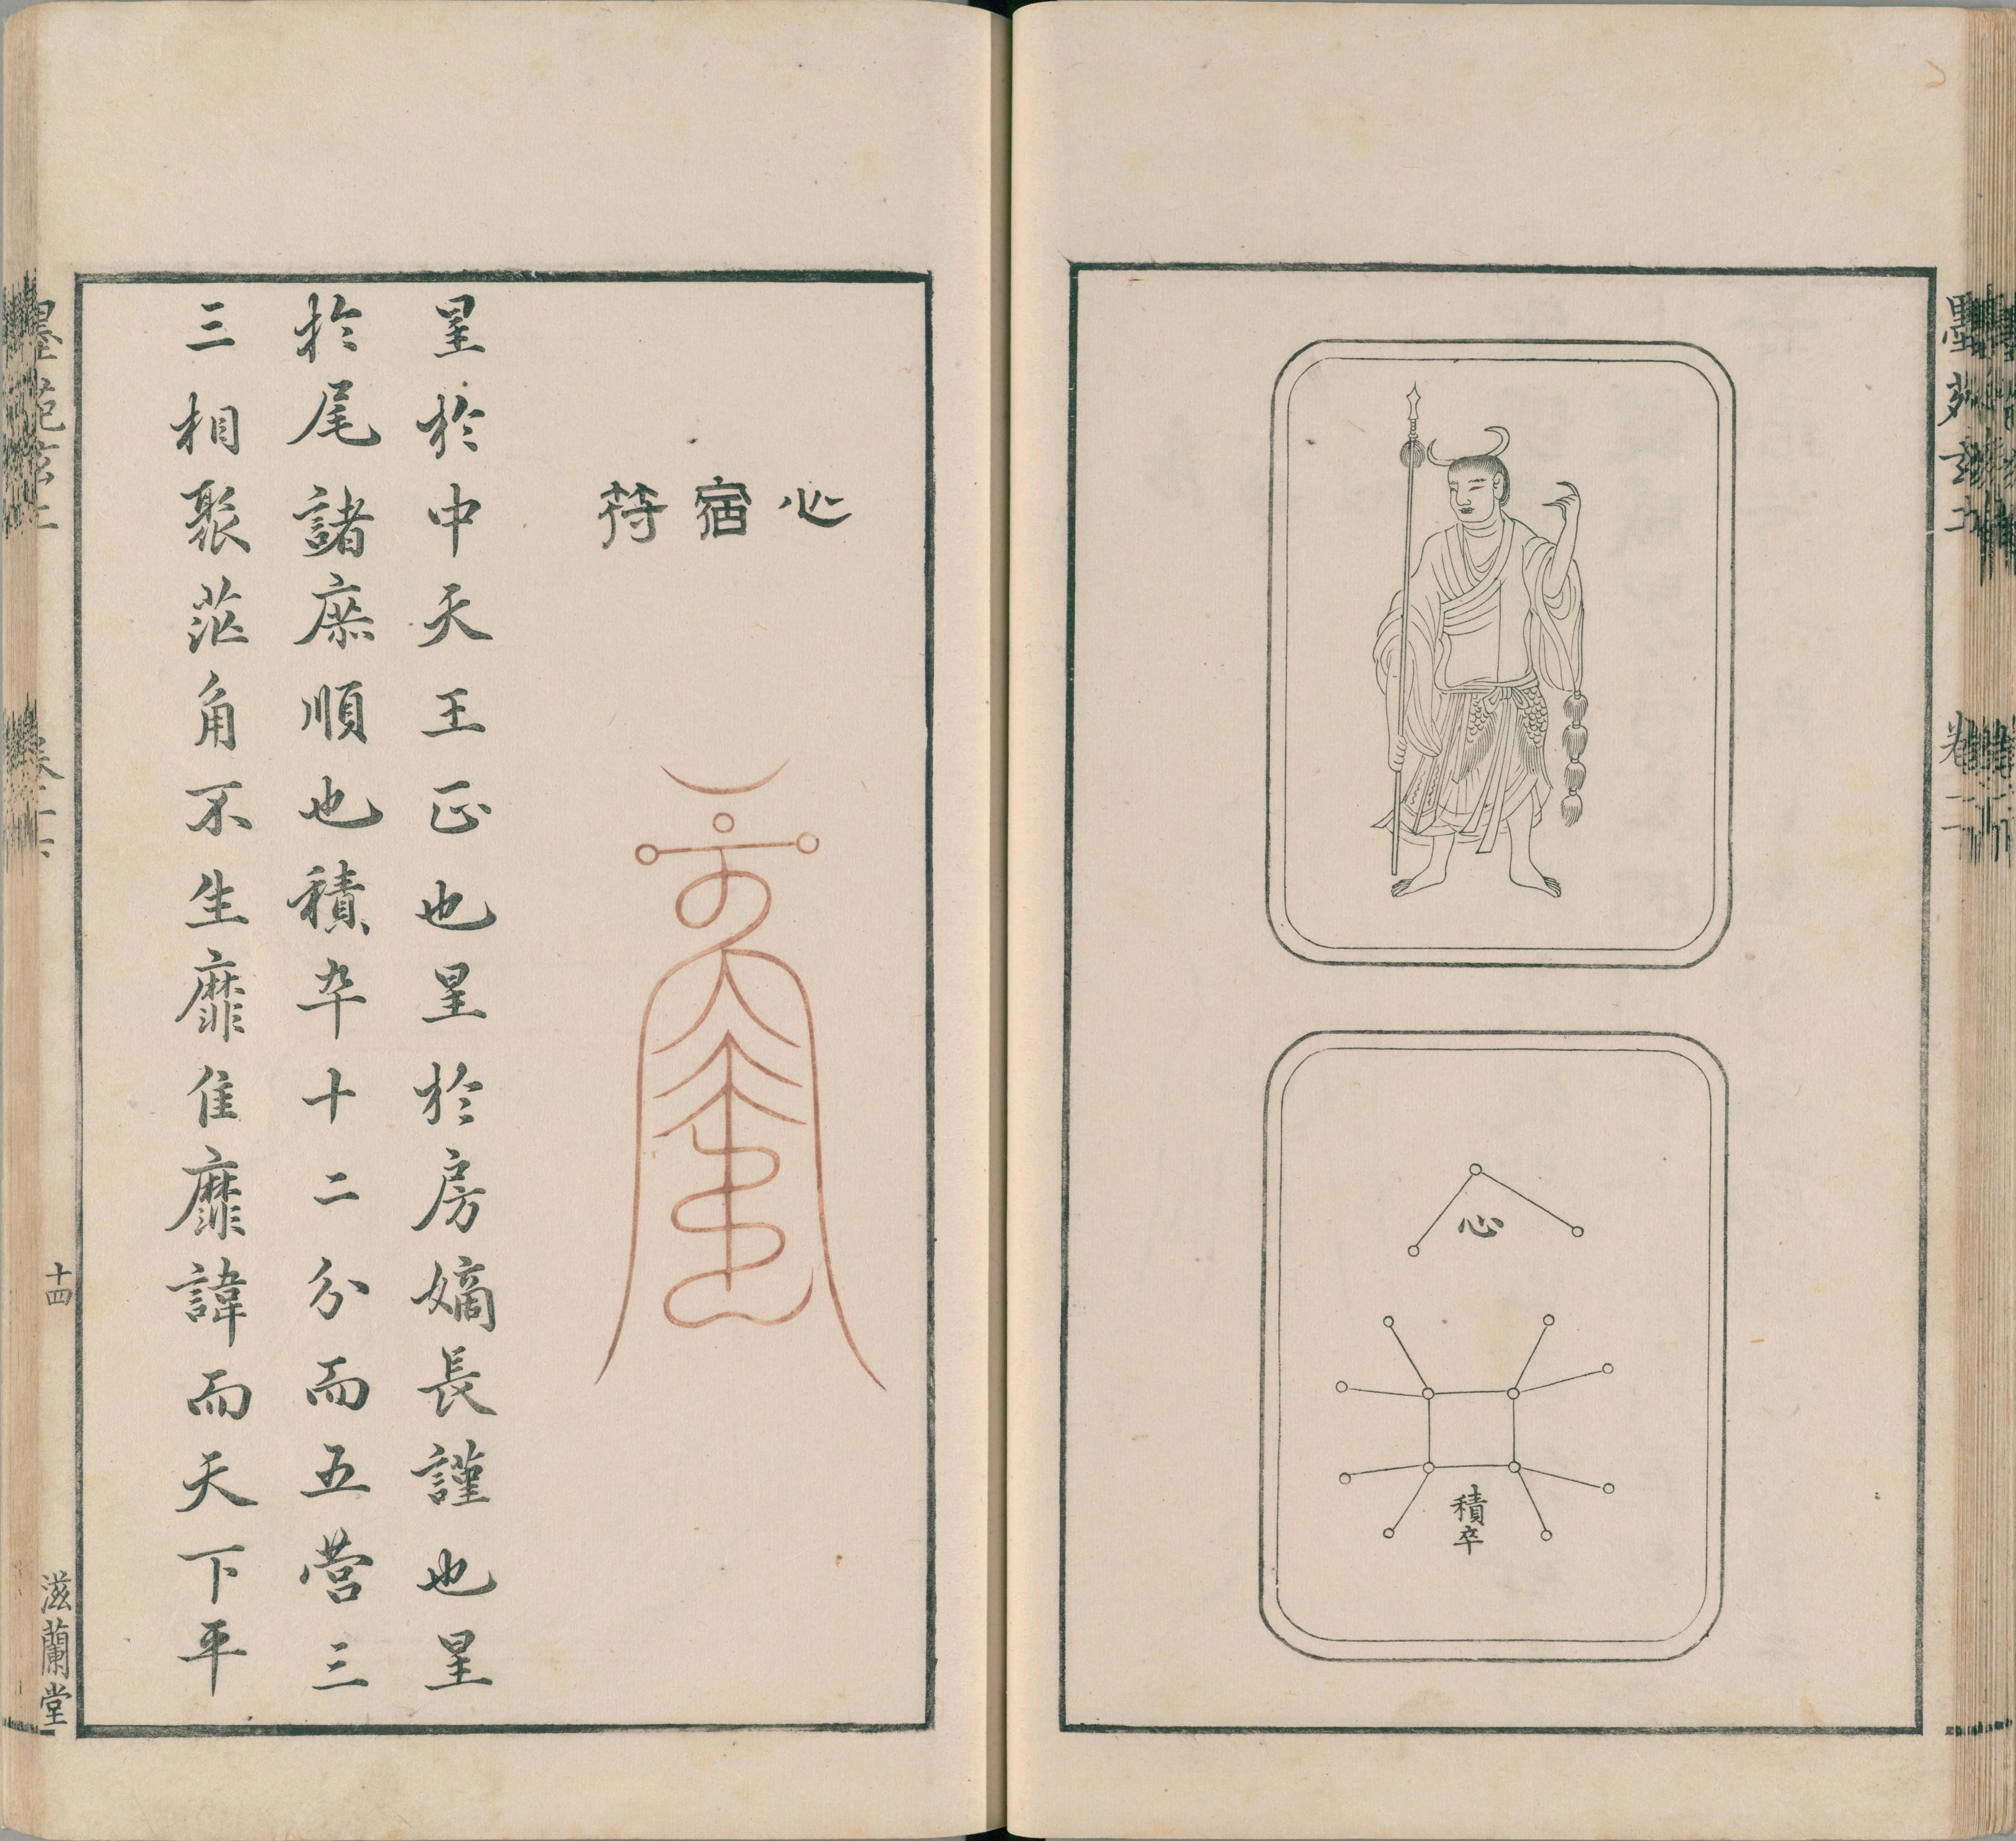 心
積卒
心宿符
星於中天王正也星於房嫡長謹也星
於尾諸庶順也積卒十二分而五營三
三相聚茫角不生靡隹靡諱而天下平
十四
滋蘭堂